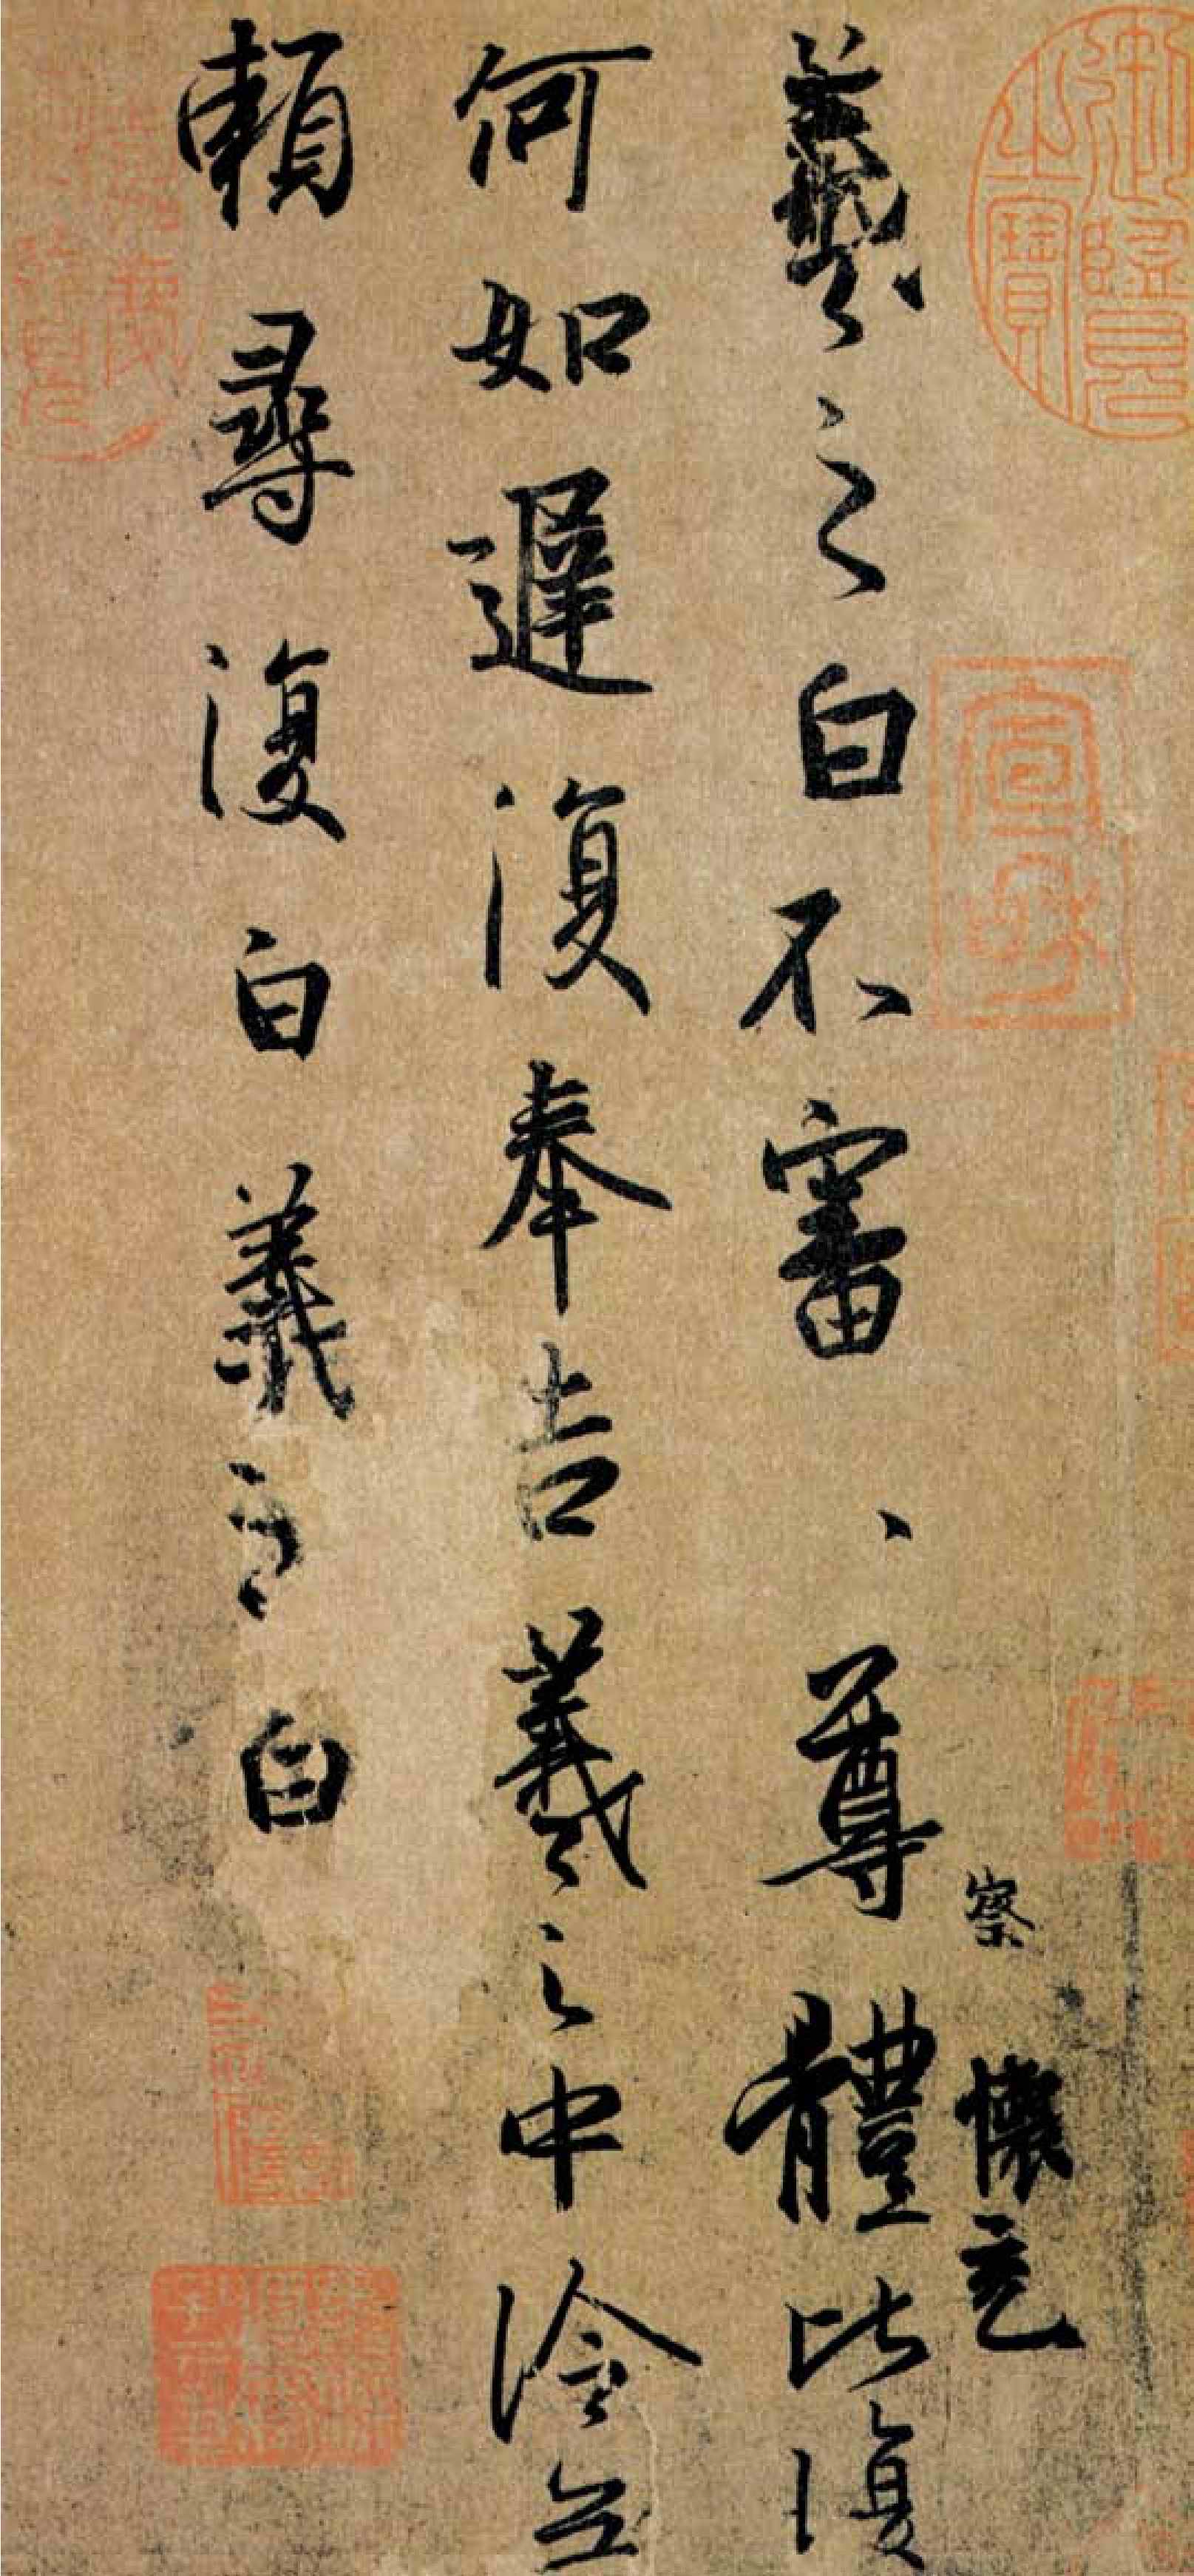 察 懷充
羲之白不審、尊體比復
何如遲復奉告羲之中冷無
賴尋復白羲之白
御隆之寶
乾